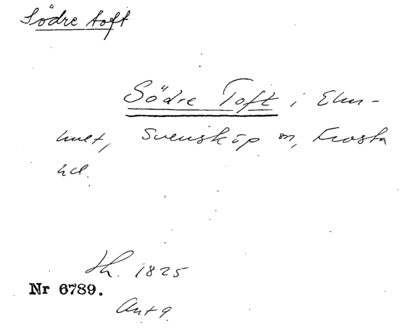 Södre toft
Södre Toft i Elm-
hult, Svensköp sn, Frosta
hd.
Lh. 1825
Nr 6789.
Ant 9.